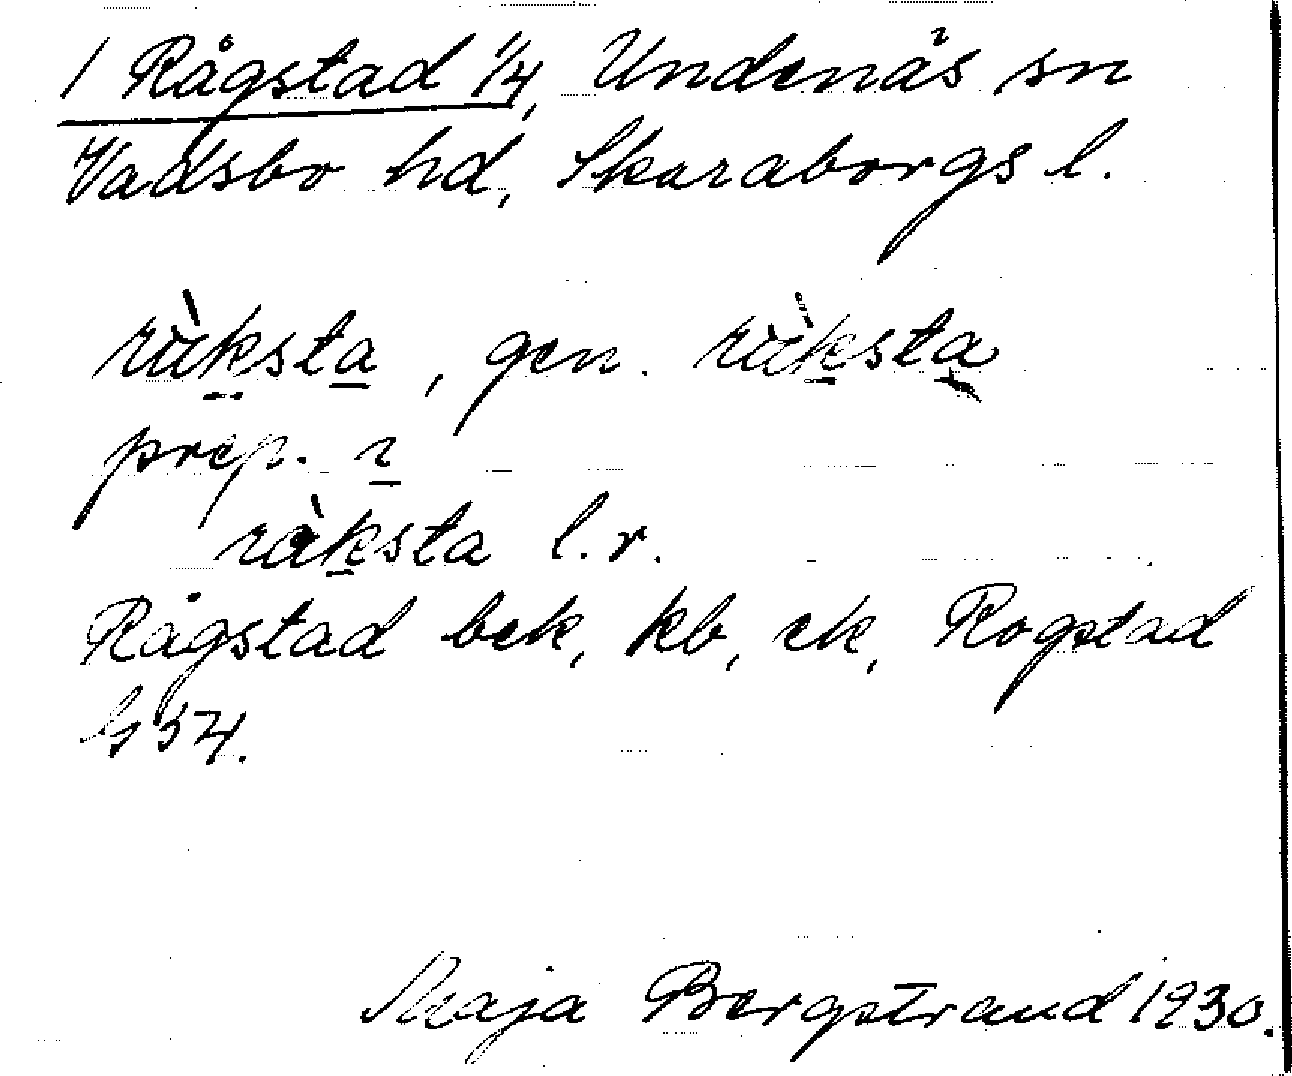 1 Rågstad 1/4, Undenäs sn
Vadsbo hd, Skaraborgs l.
rùksta, gen. rùksta
prep. ı
ràksta l.r.
Rågstad bek, kb, ek, Rogstad
G 54.
Maja Bergstrand 1930.